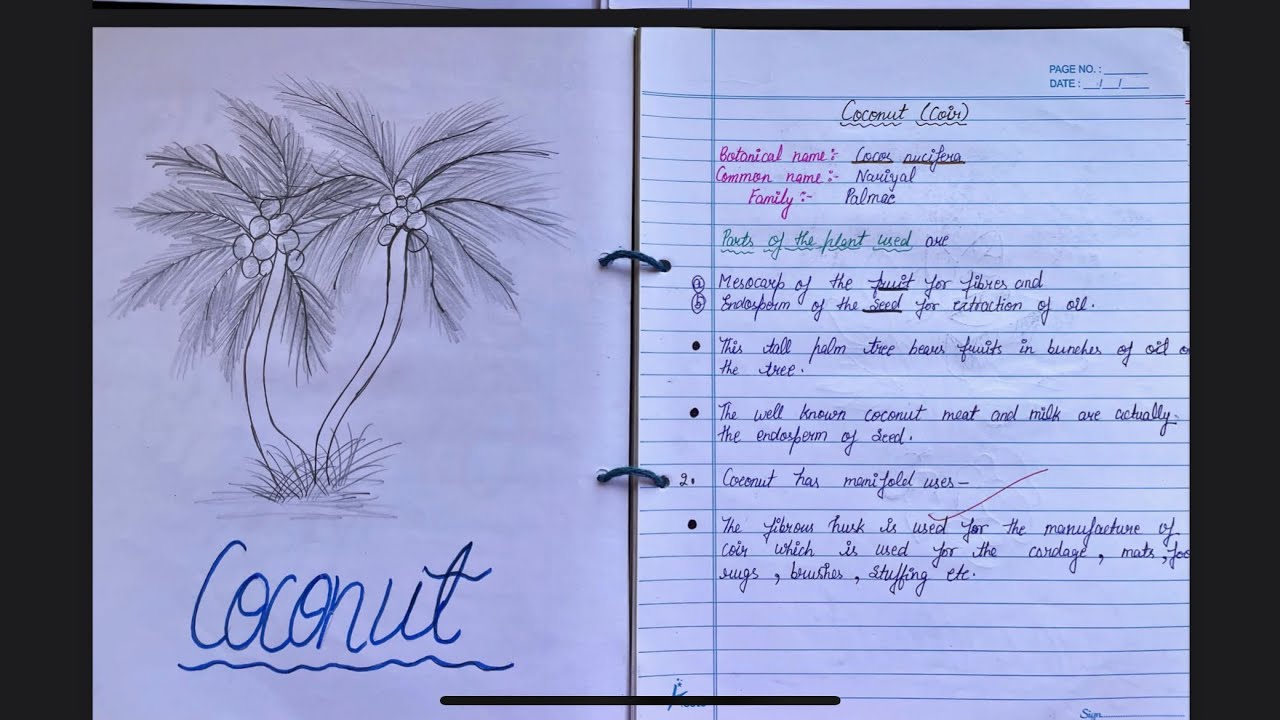 Coconut
PAGE NO. :
DATE : __/__/__
Coconut (Coir)
Botanical name:- Cocos nucifera
Common name:- Nariyal
Family:- Palmae
Parts of the plant used are
(a) Mesocarp of the fruit for fibres and
(b) Endosperm of the seed for extraction of oil.
• This tall palm tree bears fruits in bunches of oil o
the tree.
• The well known coconut meat and milk are actually
the endosperm of seed.
2. Coconut has manifold uses –
• The fibrous husk is used for the manufacture of
coir which is used for the cordage, mats, foo
rugs, brushes, stuffing etc.
Sign